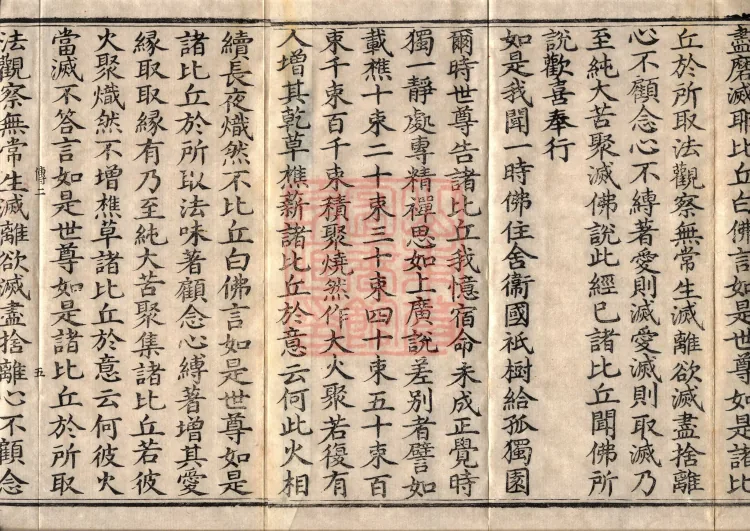 盡磨滅耶比丘白佛言如是世尊如是諸比
丘於所取法觀察無常生滅離欲滅盡捨離
心不顧念心不縛著愛則滅愛滅則取滅乃
至純大苦聚滅佛說此經已諸比丘聞佛所
說歡喜奉行
如是我聞一時佛住舍衞國祇樹給孤獨園
爾時世尊告諸比丘我憶宿命未成正覺時
獨一靜處專精禪思如上廣說差別者譬如
載樵十束二十束三十束四十束五十束百
束千束百千束積聚燒然作大火聚若復有
人增其乾草樵薪諸比丘於意云何此火相
續長夜熾然不比丘白佛言如是世尊如是
諸比丘於所取法味著顧念心縛著增其愛
緣取取緣有乃至純大苦聚集諸比丘若彼
火聚熾然不增樵草諸比丘於意云何彼火
當滅不答言如是世尊如是諸比丘於所取
傳二 五
法觀察無常生滅離欲滅盡捨離心不顧念